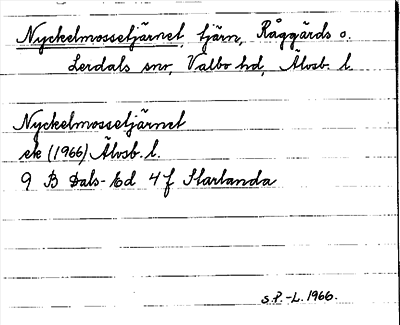 Nyckelmossetjärnet, tjärn, Råggärds o.
Lerdals snr, Valbo hd, Älvsb. l.
Nyckelmossetjärnet
ek (1966) Älvsb. l.
9 B Dals-Ed 4 f Starlanda
S.P.-L. 1966.